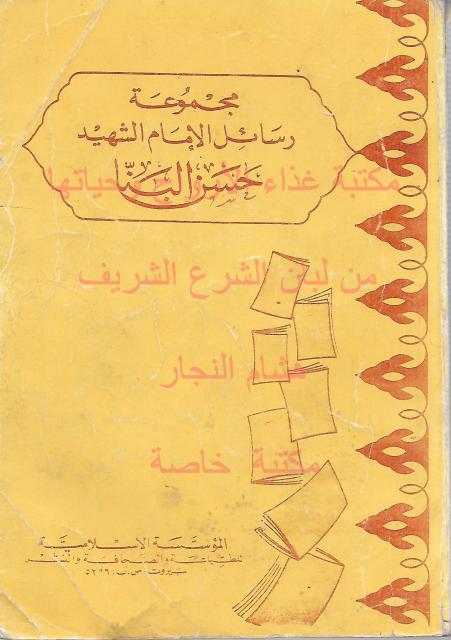 مجموعة
رسائل الإمام الشهيد
حسن البنا
مكتبة غذاء حياتها
من لبن الشرع الشريف
هشام النجار
مكتبة خاصة
المؤسسة الإسلامية
للطباعة والصحافة والنشر
بيروت ص.ب: ٥٢٩٦